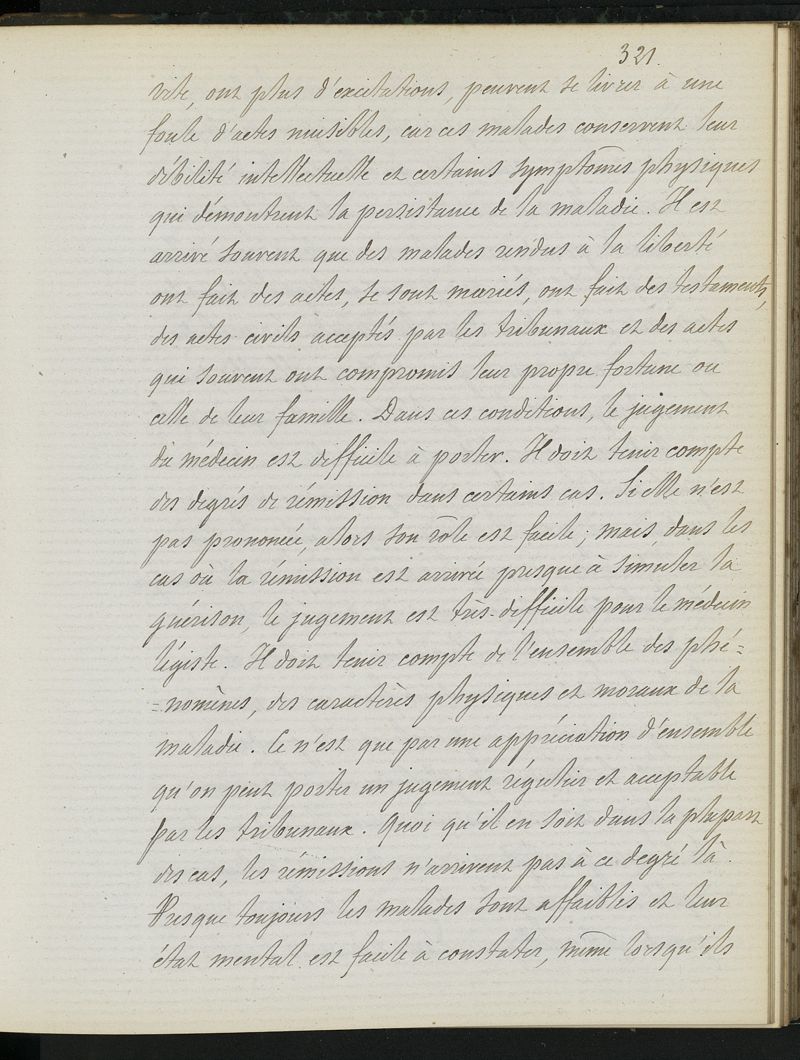 321.
vité, ont plus d'excitations, peuvent se livrer à une
foule d'actes nuisibles, car ces malades conservent leur
débilité intellectuelle et certains symptômes physiques
qui démontrent la persistance de la maladie. Il est
arrivé souvent que des malades rendus à la liberté
ont fait des actes, se sont mariés, ont fait des testaments,
des actes civils acceptés par les tribunaux et des actes
qui souvent ont compromis leur propre fortune ou
celle de leur famille. Dans ces conditions, le jugement
du médecin est difficile à porter. Il doit tenir compte
des degrés de rémission dans certains cas. Si elle n'est
pas prononcée, alors son rôle est facile; mais, dans les
cas où la rémission est arrivée presque à simuler la
guérison, le jugement est très-difficile pour le médecin
légiste. Il doit tenir compte de l'ensemble des phé=
=nomènes, des caractères physiques et moraux de la
maladie. Ce n'est que par une appréciation d'ensemble
qu'on peut porter un jugement régulier et acceptable
par les tribunaux. Quoi qu'il en soit dans la plupart
des cas, les rémissions n'arrivent pas à ce degré là.
Presque toujours les malades sont affaiblis et leur
état mental est facile à constater, même lorsqu'ils